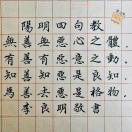 陽明四句教
無善無惡心之體,
有善有惡意之動.
知善知惡是良知,
為善去惡是格物.
李良明敬書